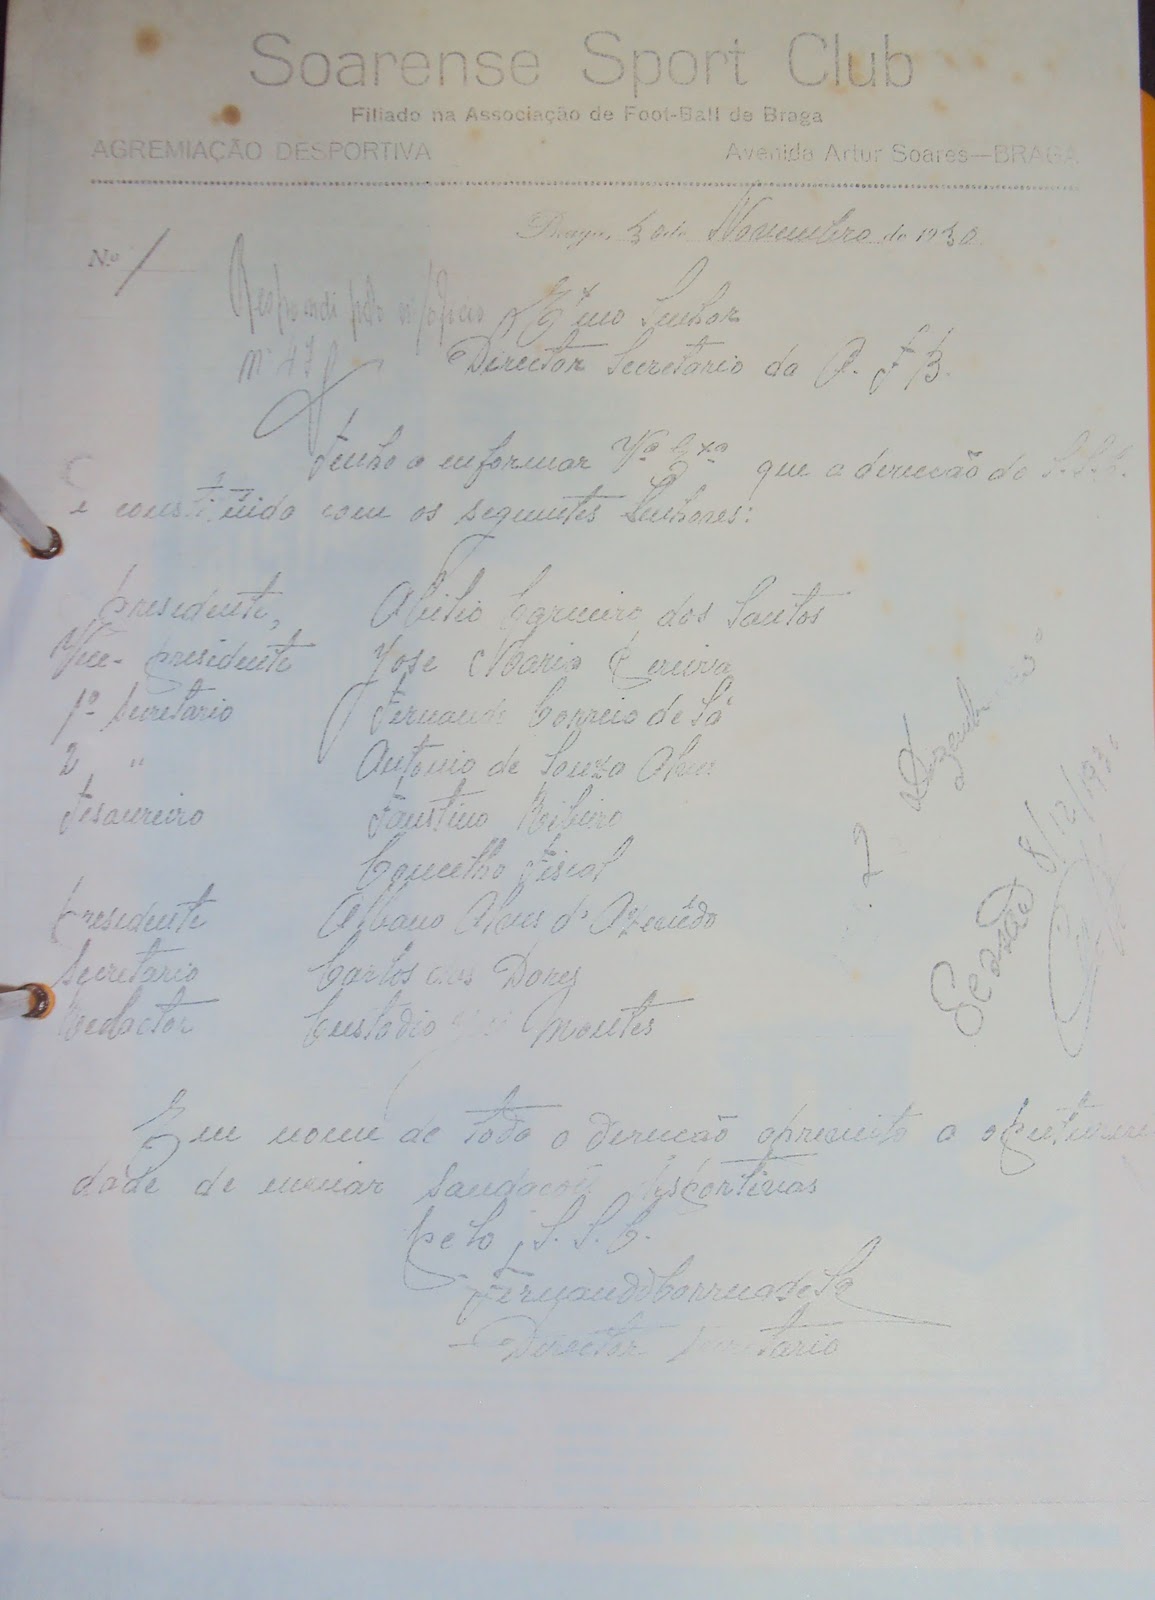 Soarense Sport Club
Filiado na Associação de Foot-Ball de Braga
AGREMIAÇÃO DESPORTIVA Avenida Artur Soares—BRAGA
Braga, 30 de Novembro de 1930
N.º 1
Respondi pelo officio
Nº 47
Exmo Senhor
Director Secretario da A. F. B.
Tenho a enformar Vª Exª que a derecão do S.S.C.
e constituido com os seguintes Senhores:
Presidente, Abilio Carneiro dos Santos
Vice-presidente Jose Maria Pereira
1º Secretario Fernando Correia de Sá
2 " Antonio de Souza Alves
Tesoureiro Faustino Ribeiro
Concelho Fiscal
Presidente Albano Alves d' Azevêdo
Secretario Carlos das Dores
Redactor Custodio José Montes
2 Dezembro
Sessão 8/12/930
Em nome de toda a derecão aproveito a oportuni
dade de enviar saudacões desportivas
Pelo S. S. C.
Fernando Correia de Sá
Director Secretario